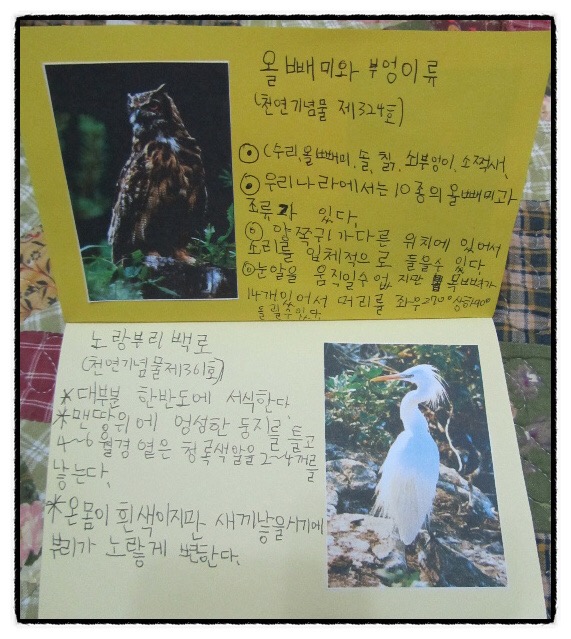 올빼미와 부엉이류
(천연기념물 제324호)
(수리,올빼미,솔,칡,쇠부엉이,소쩍새,
우리나라에서는 10종의 올빼미과
조류가 있다.
양쪽귀가다른 위치에 있어서
소리를 입체적으로 들을수 있다.
눈알을 움직일수 없지만 목뼈가
14개있어서 머리를 좌우270°상하90°
돌릴수있다.
노랑부리백로
(천연기념물제361호)
*대부분 한반도에 서식한다
*맨땅위에 엉성한 둥지를 틀고
4~6월경 옅은 청록색알을 2~4개를
낳는다.
*온몸이 흰색이지만 새끼낳을시기에
부리가 노랗게 변한다.